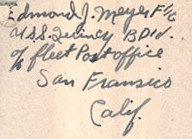 Edmond J. Meyer F 1/c
U.S.S. Quincy B Div.
c/o fleet Post office
San Fransico
Calif.